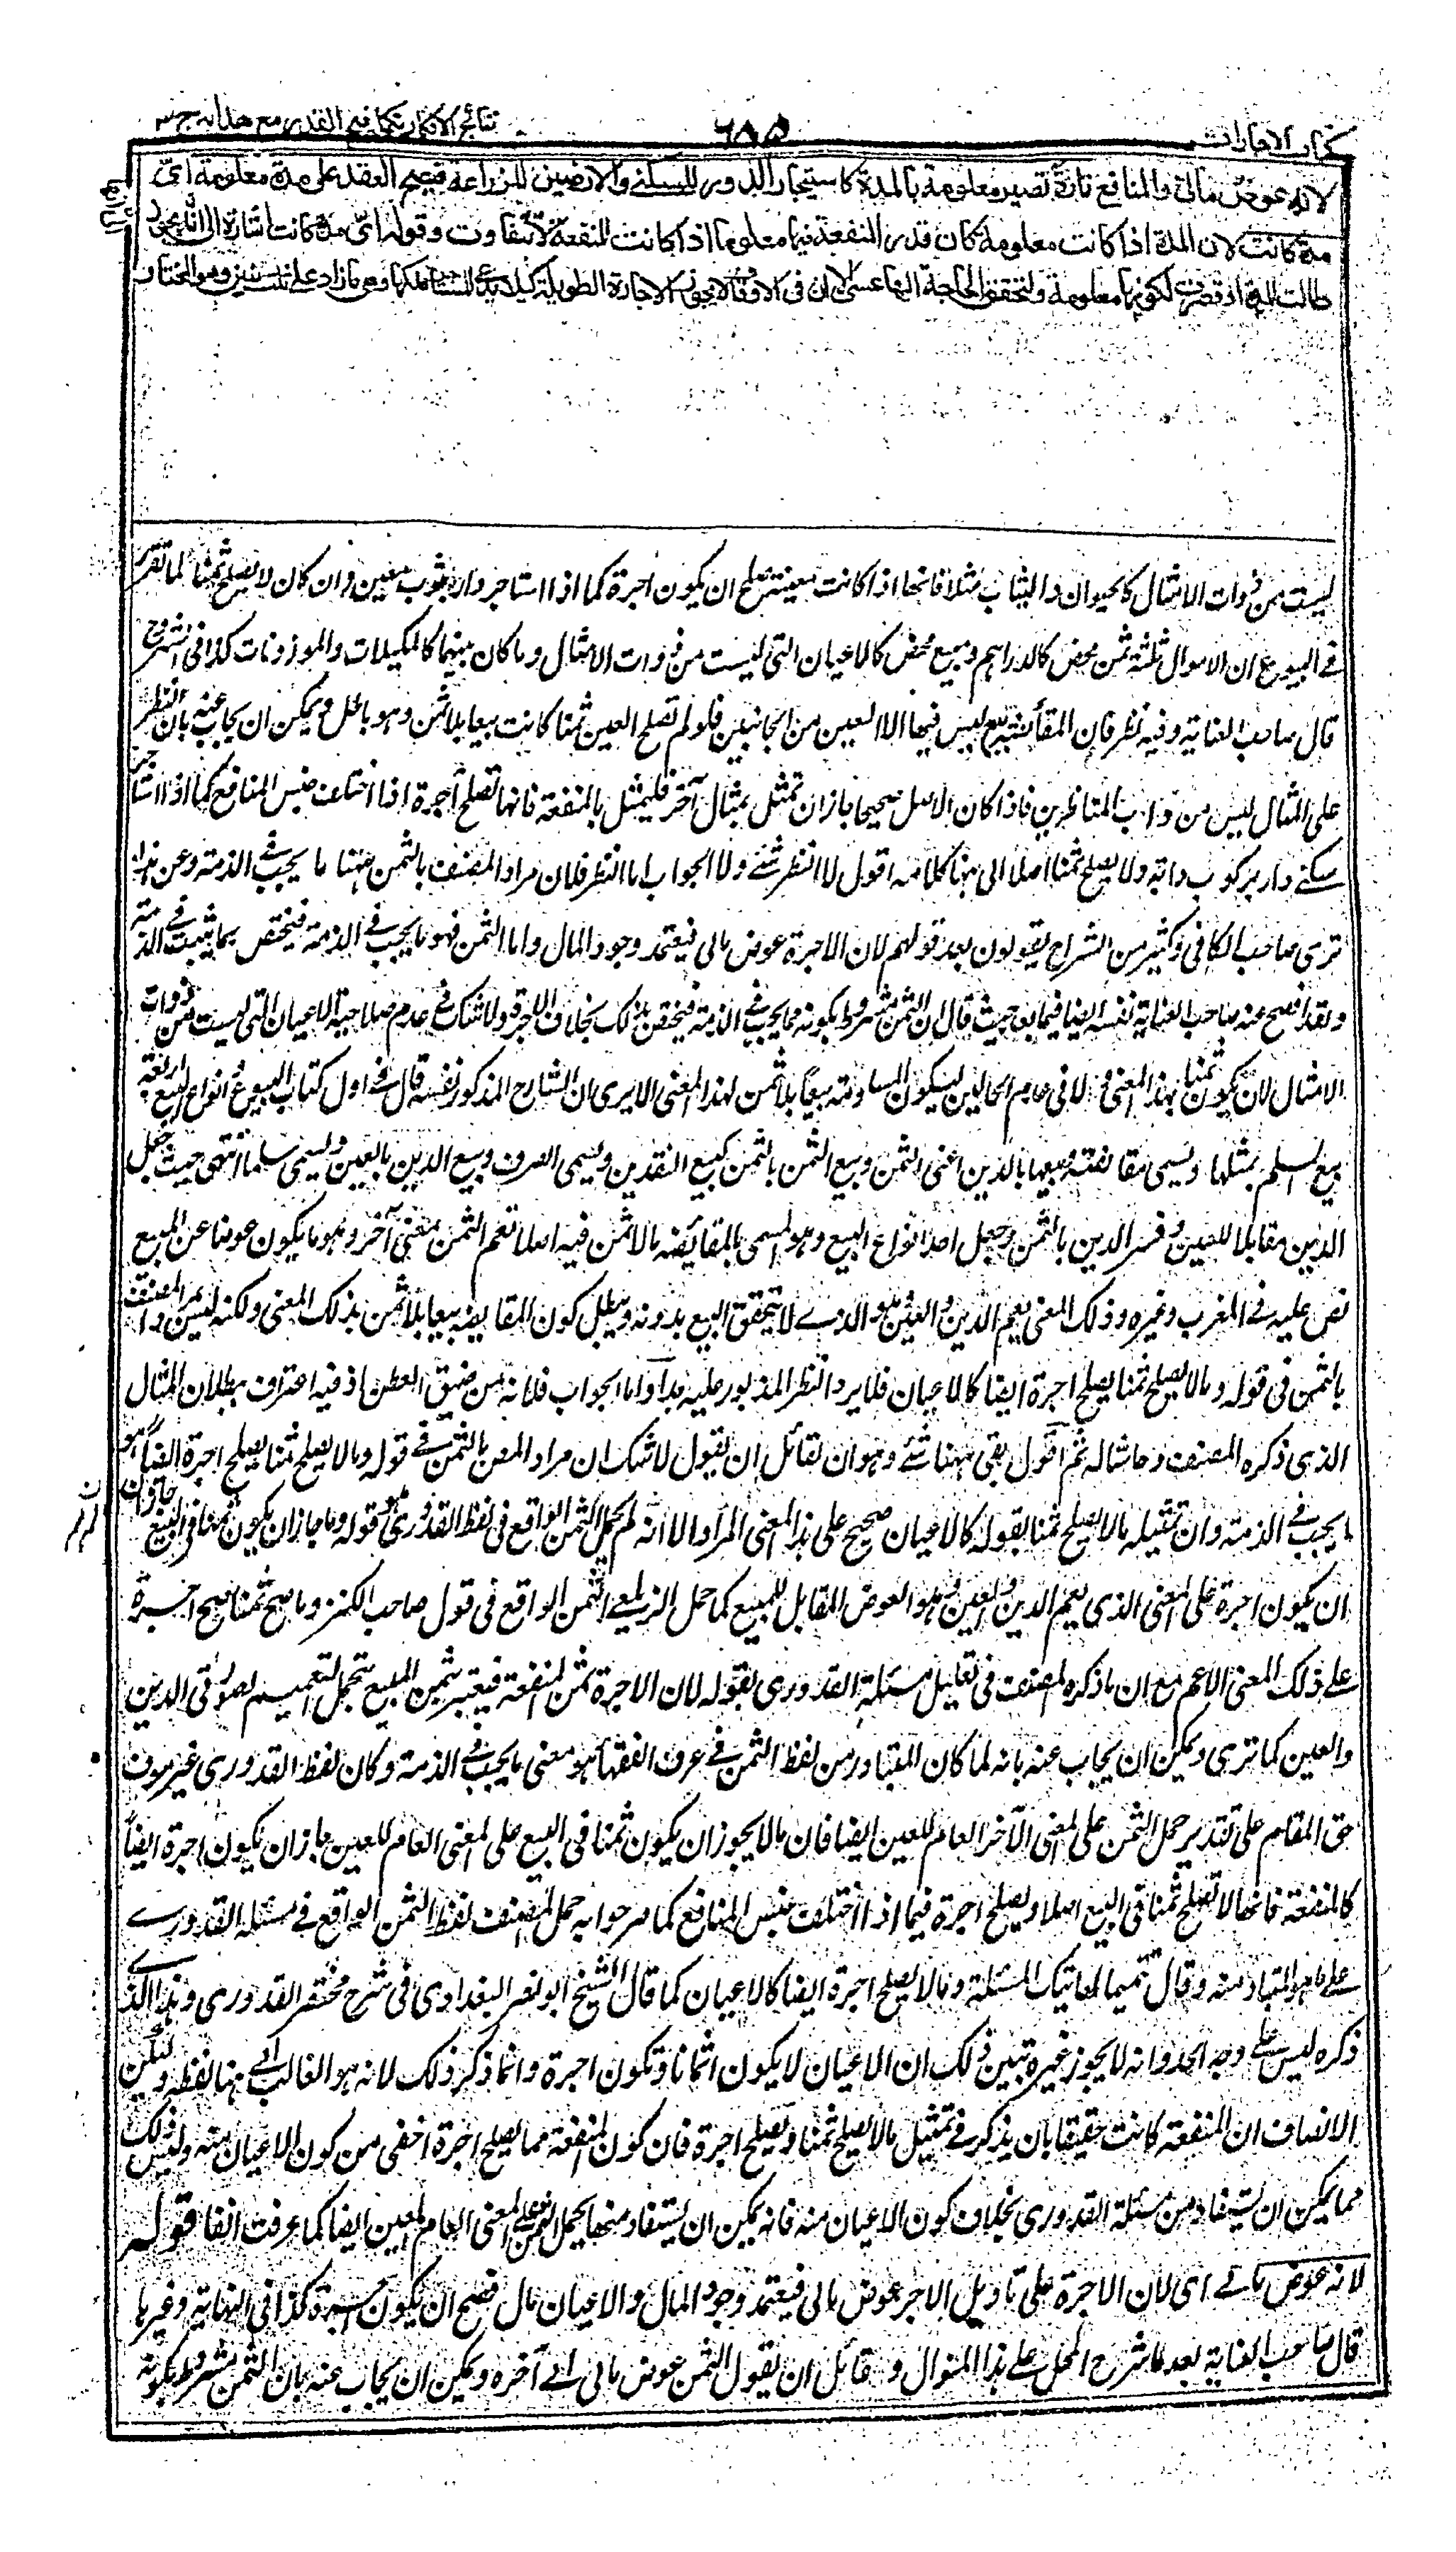 كتاب الاجارات
٦٨٥
نتائج الافكار تكملة فتح القدير مع هدايه ج ٣
لانه عوض مالى والمنافع تارة تصير معلومة بالمدة كاستيجار الدور للسكنى والارضين للزراعة فيصح العقد على مدة معلومة اى
مدة كانت لان المدة اذا كانت معلومة كان قدر المنفعة فيها معلوما اذا كانت المنفعة لا تتفاوت وقوله اى مدة كانت اشارة الى انه يجوز
طالت المدة او قصرت لكونها معلومة ولتحقق الحاجة اليها عسى الا ان فى الاوقاف لا يجوز الاجارة الطويلة كيلا يدعى المستاجر ملكها وهى ما زاد على ثلث سنين وهو المختار
ليست من ذوات الامثال كالحيوان والثياب مثلا فانها اذا كانت معينة تصلح ان يكون اجرة كما اذا استاجر دارا بثوب معين وان كان لا يصلح ثمنا لما تقرر
فى البيوع ان الاموال ثلثة ثمن محض كالدراهم ومبيع محض كالاعيان التى ليست من ذوات الامثال وما كان بينهما كالمكيلات والموزونات كذا فى الشروح
قال صاحب العناية وفيه نظر فان المقايضة بيع ليس فيها الا العين من الجانبين فلو لم تصلح العين ثمنا كانت بيعا بلا ثمن وهو باطل ويمكن ان يجاب عنه بان النظر
على المثال ليس من داب المناظرين فاذا كان الاصل صحيحا جاز ان تمثل بمثال آخر فليمثل بالمنفعة فانها تصلح اجرة اذا اختلف جنس المنافع كما اذا استاجر
سكنى دار بركوب دابة ولا يصلح ثمنا اصلا الى هنا كلامه اقول لا النظر شئ ولا الجواب اما النظر فلان مراد المصنف بالثمن ههنا ما يجب فى الذمة وعن هذا
ترى صاحب الكافى وكثير من الشراح يقولون بعد قولهم لان الاجرة عوض مالى فيعتمد وجود المال واما الثمن فهو ما يجب فى الذمة فيختص بما يثبت فى الذمة
ولقد افصح عنه صاحب العناية نفسه ايضا فيما بعد حيث قال ان الثمن مشروط بكونه مما يجب فى الذمة فيختص بذلك بخلاف الاجرة ولا شك فى عدم صلاحية الاعيان التى ليست من ذوات
الامثال لان يكون ثمنا بهذا المعنى لا فى عامة الحالين ليكون المساومة بيعا بلا ثمن لهذا المعنى الا يرى ان الشارح المذكور نفسه قال فى اول كتاب البيوع انواع البيع اربعة
بيع السلم بمثلها ويسمى مقايضة وبيعها بالدين اعنى الثمن وبيع الثمن بالثمن كبيع النقدين ويسمى الصرف وبيع الدين بالعين ويسمى سلما انتهى حيث جعل
الدين مقابلا للعين وفسر الدين بالثمن وجعل احد انواع البيع وهو المسمى بالمقايضة ما لا ثمن فيه اصلا نعم الثمن معنى آخر وهو ما يكون عوضا عن المبيع
نص عليه فى المغرب وغيره وذلك المعنى يعم الدين والعين وهو الذى لا يتحقق البيع بدونه ويبطل كون المقايضة بيعا بلا ثمن بذلك المعنى ولكنه ليس مراد المصنف
بالثمن فى قوله وما لا يصلح ثمنا يصلح اجرة ايضا كالاعيان فلا يرد النظر المذبور عليه بدا واما الجواب فلانه من ضيق العطن اذ فيه اعتراف ببطلان المثال
الذى ذكره المصنف وحاشا له ثم اقول بقى ههنا شئ وهو ان لقائل ان يقول لا شك ان مراد المصنف بالثمن فى قوله وما لا يصلح ثمنا يصلح اجرة ايضا هو
ما يجب فى الذمة وان تمثيله ما لا يصلح ثمنا بقوله كالاعيان صحيح على هذا المعنى المراد الا انه لم يحمل الثمن الواقع فى لفظ القدورى وهو قوله وما جاز ان يكون ثمنا فى البيع جاز
ان يكون اجرة على المعنى الذى يعم الدين والعين وهو العوض المقابل للمبيع كما حمل الزيلعى الثمن الواقع فى قول صاحب الكنز وما صح ثمنا صح اجرة
على ذلك المعنى الاعم مع ان ما ذكره المصنف فى تعليل مسئلة القدورى بقوله لان الاجرة ثمن المنفعة فيعتبر بثمن المبيع يتحمل التعميم لصورتى الدين
والعين كما ترى ويمكن ان يجاب عنه بانه لما كان المتبادر من لفظ الثمن فى عرف الفقهاء هو معنى ما يجب فى الذمة وكان لفظ القدورى غير موف
حق المقام على تقدير حمل الثمن على المعنى الآخر العام للعين ايضا فان ما لا يجوز ان يكون ثمنا فى البيع على المعنى العام للعين جاز ان يكون اجرة ايضا
كالمنفعة فانها لا تصلح ثمنا فى البيع اصلا ويصلح اجرة فيما اذا اختلف جنس المنافع كما صرحوا به حمل المصنف لفظ الثمن الواقع فى مسئلة القدورى
على ما هو المتبادر منه وقال تتميما لهاتيك المسئلة وما لا يصلح اجرة ايضا كالاعيان كما قال الشيخ ابو نصر البغدادى فى شرح مختصر القدورى وهذا الذى
ذكره ليس على وجه الحد وانه لا يجوز غيره تبين ذلك ان الاعيان لا يكون اثمانا وتكون اجرة وانما ذكر ذلك لانه هو الغالب الى هنا لفظه ولكن
الانصاف ان المنفعة كانت حقيقا بان يذكر فى تمثيل ما لا يصلح ثمنا ويصلح اجرة فان كون المنفعة مما يصلح اجرة اخفى من كون الاعيان منه وليس ذلك
مما يمكن ان يستفاد من مسئلة القدورى بخلاف كون الاعيان منه فانه يمكن ان يستفاد منها بحمل الثمن على المعنى العام للعين ايضا كما عرفت انفا قوله
لانه عوض مالى اى لان الاجرة على تاويل الاجر عوض مالى فيعتمد وجود المال والاعيان مال فصح ان يكون اجرة كذا فى النهاية وغيرها
قال صاحب العناية بعد ما شرح المحل على هذا المنوال و لقائل ان يقول الثمن عوض مالى الى آخره ويمكن ان يجاب عنه بان الثمن مشروط بكونه